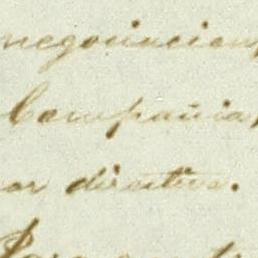 negociacion
Compañia,
or directiva.